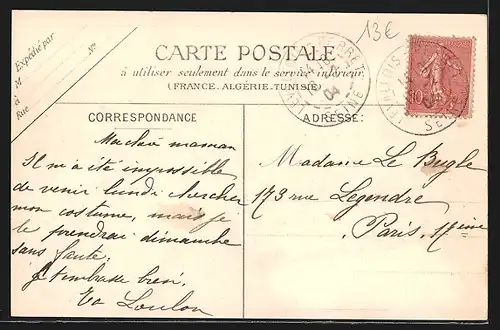 Expédié par
M
à
Rue
N°
13€
CARTE POSTALE
à utiliser seulement dans le service intérieur.
(FRANCE. ALGÉRIE-TUNISIE)
CORRESPONDANCE
ADRESSE:
Ma chère maman
Il m'a été impossible
de venir lundi chercher
mon costume, mais je
le prendrai dimanche
sans faute.
Je t'embrasse bien,
Ta Loulou
Madame Le Bugle
173 rue Legendre
Paris. 17ème
PERRET
04
SEINE
LEVALLOIS
SE
10